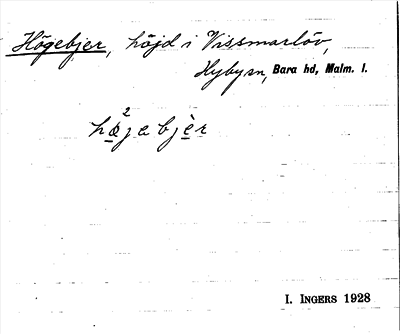 Högebjer, höjd i Vissmarlöv,
Hyby sn, Bara hd, Malm. l.
hø²jabjèr
I. INGERS 1928